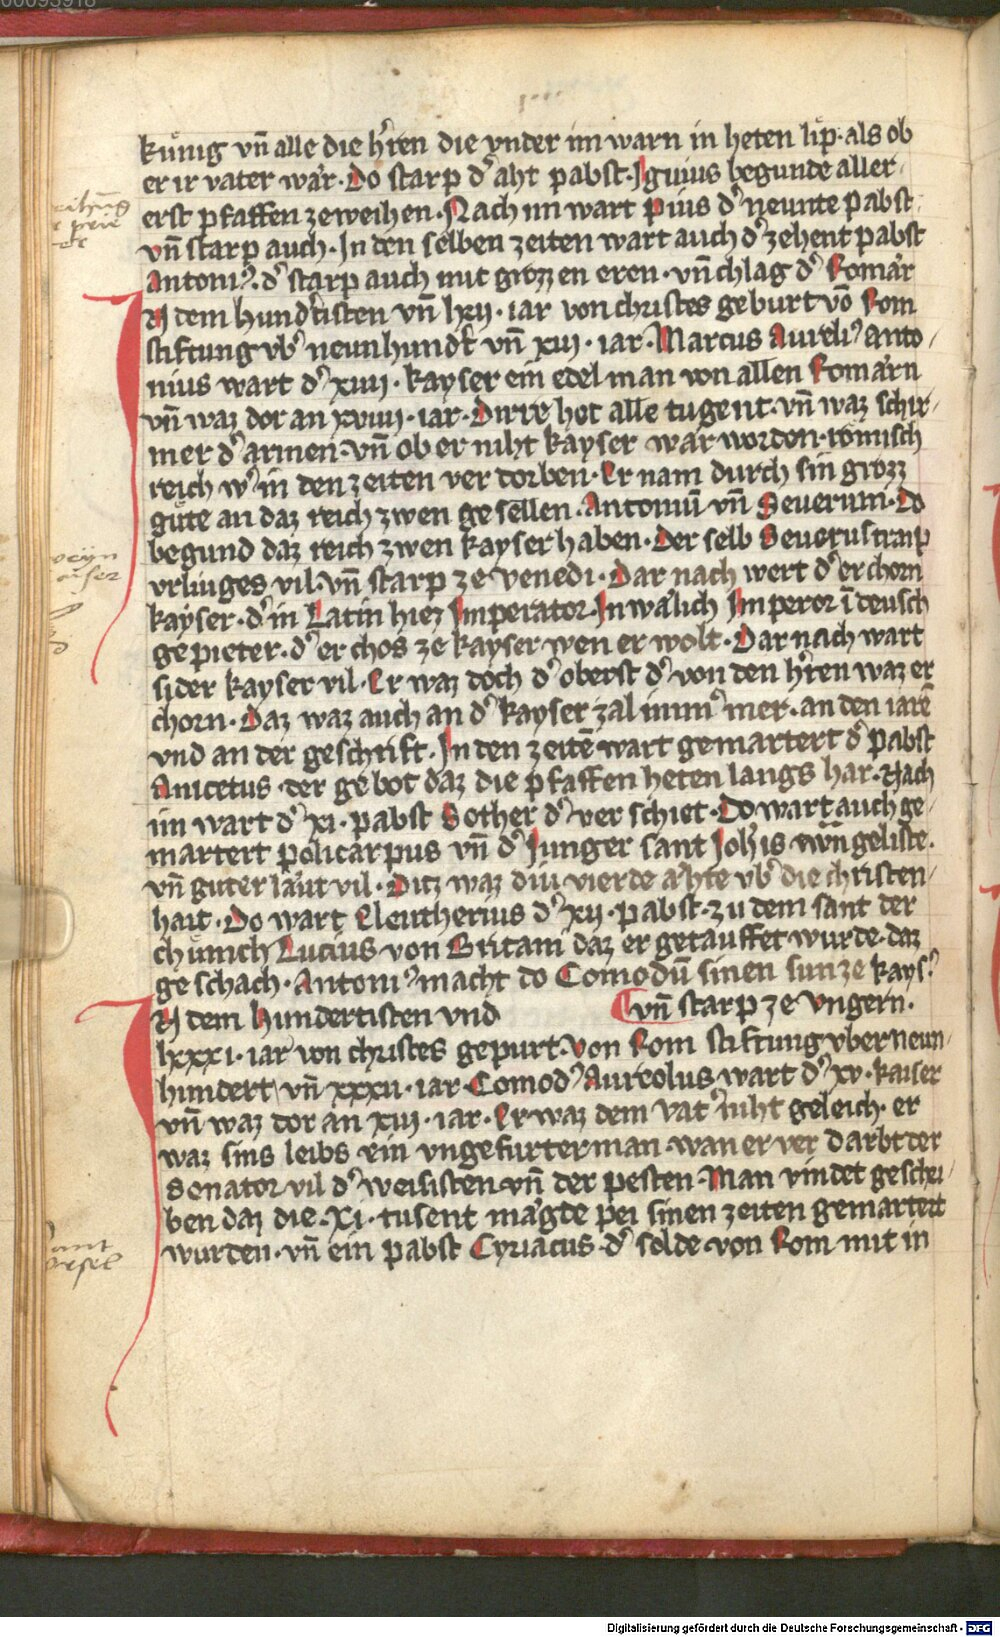 kuͤnig vn̄ alle die h’ren die vnder im warn in heten lip · als ob
er ir vater waͤr · Do starp d’ aht pabst · Iginius begunde aller-
erst pfaffen zeweihen · Nach im wart pius d’ neunte pabst ·
vn̄ starp auch · In den selben zeiten wart auch d’ zehent pabst
Antoni’ · d’ starp auch mit grozzen eren · vn̄ chlag d’ Romaͤr
IN dem hund’tisten vn̄ lxij · iar von christes geburt vō Rom
stiftung vb’ neunhund’t vn̄ xiij · iar · Marcus Aureli’ Anto-
nius wart d’ xiiij · kayser ein edel man von allen Romaͤrn
vn̄ waz dor an xviiij · iar · Dirre het alle tugent · vn̄ waz schir-
mer d’ armen · vn̄ ob er niht kayser waͤr worden · roͤmisch
reich w’ in den zeiten ver dorben · Er nam durch sin grozz
guͤte an daz reich zwen gesellen · Antoniū vn̄ Seuerum · Do
begund daz reich zwen kayser haben · Der selb Seuerus traip
vrliuges vil · vn̄ starp ze Venedi · Dar nach wert d’ erchorn
kayser · d’ in Latin hiez Imperator · In waͤlich Imperor ī deusch
gepieter · d’ er chos ze kayser wen er wolt · Dar nach wart
sider kayser vil · Er waz doch d’ oberst d’ von den h’ren waz er
chorn · Daz waz auch an d’ kayser zal imm’ mer · an den iarē
vnd an der geschrift · In den zeitē wart gemartert d’ pabst
Anicetus · der gebot daz die pfaffen heten langs har · Nach
im wart d’ xi · pabst Sother d’ ver schiet · Do wart auch ge-
martert policarpus vn̄ d’ Iunger sant Ioh’is ewāngeliste ·
vn̄ guter laͤut vil · Ditz waz diu vierde aͤhte vb’ die christen-
hait · Do wart Eleutherius d’ xij · pabst · zu dem sant der
chuͤnich Lucius von Britani daz er getauffet wurde · daz
geschach · Antoni’ macht do Comodū sinen sun ze kays’
vn̄ starp ze vngern ·
IN dem hundertisten vnd
lxxxi · iar von christes gepurt · Von Rom stiftung vber neun-
hundert vn̄ xxxii · iar · Comod’ Aureolus wart d’ xv · kaiser
vn̄ waz dor an xiij · iar · Er waz dem vat’ niht geleich · er
waz sins leibs ein vngefurter man · wan er ver darbt der
Senator vil d’ weisisten vn̄ der pesten · Man vindet geschri-
ben daz die · xi · tusent maͤgde pei sinen zeiten gemartert
wurden · vn̄ ein pabst Cyriacus · d’ solde von Rom mit in
Digitalisierung gefördert durch die Deutsche Forschungsgemeinschaft - DFG